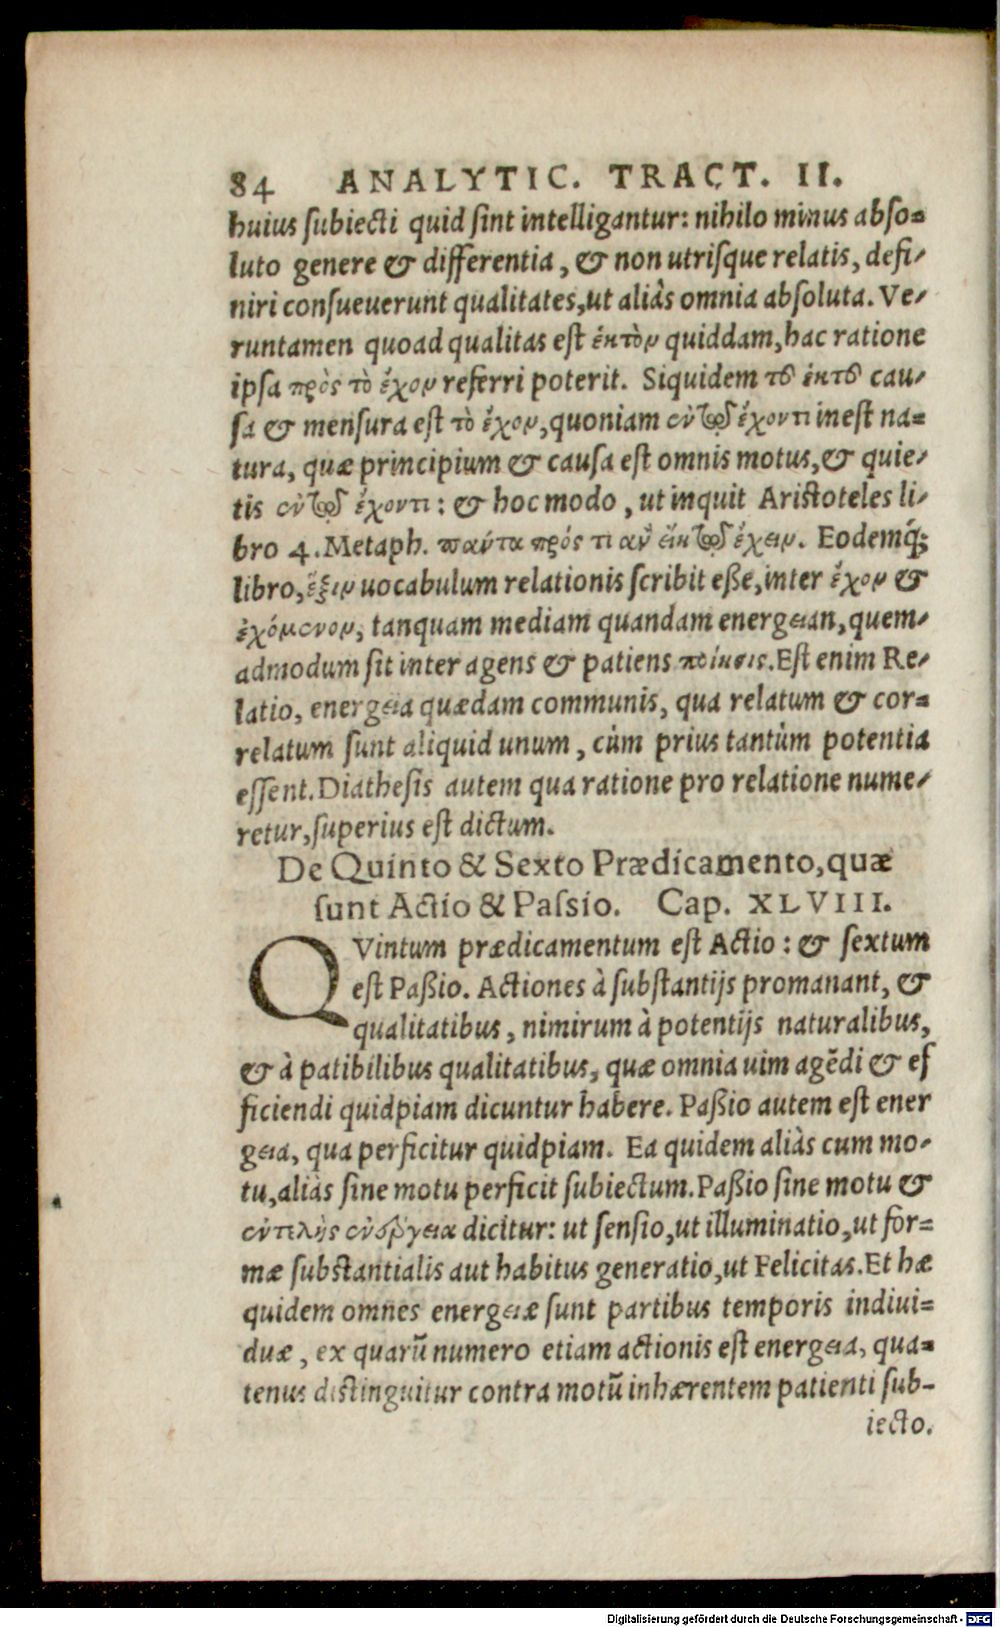 84 ANALYTIC. TRACT. II.
huius subiecti quid sint intelligantur: nihilo minus abso=
luto genere & differentia, & non utrisque relatis, defi/
niri consueuerunt qualitates, ut aliàs omnia absoluta. Ve/
runtamen quoad qualitas est ἑκτὸν quiddam, hac ratione
ipsa πρὸς τὸ ἔχον referri poterit. Siquidem τοῦ ἑκτοῦ cau/
sa & mensura est τὸ ἔχον, quoniam ἐν τῷ ἔχοντι inest na=
tura, quæ principium & causa est omnis motus, & quie/
tis ἐν τῷ ἔχοντι: & hoc modo, ut inquit Aristoteles li/
bro 4. Metaph. πάντα πρός τι ἂν εἴη τῷ ἔχειν. Eodemq́;
libro, ἕξιν uocabulum relationis scribit eße, inter ἔχον &
ἐχόμενον, tanquam mediam quandam energειan, quem/
admodum sit inter agens & patiens ποίησις. Est enim Re/
latio, energεια quædam communis, qua relatum & cor=
relatum sunt aliquid unum, cùm prius tantùm potentia
essent. Diathesis autem qua ratione pro relatione nume/
retur, superius est dictum.
De Quinto & Sexto Prædicamento, quæ
sunt Actio & Passio. Cap. XLVIII.
QVintum prædicamentum est Actio: & sextum
est Paßio. Actiones à substantijs promanant, &
qualitatibus, nimirum à potentijs naturalibus,
& à patibilibus qualitatibus, quæ omnia uim agẽdi & ef
ficiendi quidpiam dicuntur habere. Paßio autem est ener
gεια, qua perficitur quidpiam. Ea quidem aliàs cum mo/
tu, aliàs sine motu perficit subiectum. Paßio sine motu &
ἐντελὴς ἐνέργεια dicitur: ut sensio, ut illuminatio, ut for=
mæ substantialis aut habitus generatio, ut Felicitas. Et hæ
quidem omnes energειæ sunt partibus temporis indiui=
duæ, ex quarũ numero etiam actionis est energεια, qua=
tenus distinguitur contra motũ inhærentem patienti sub-
iecto.
Digitalisierung gefördert durch die Deutsche Forschungsgemeinschaft - DFG